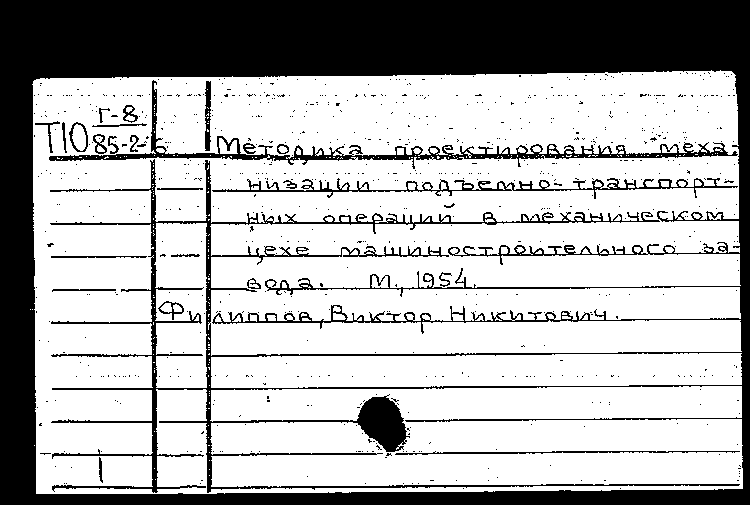 Г-8
П10 85-2-16 Методика проектирования меха-
низации подъемно-транспорт-
ных операций в механическом
цехе машиностроительного за-
вода. М., 1954.
Филиппов, Виктор Никитович.
1